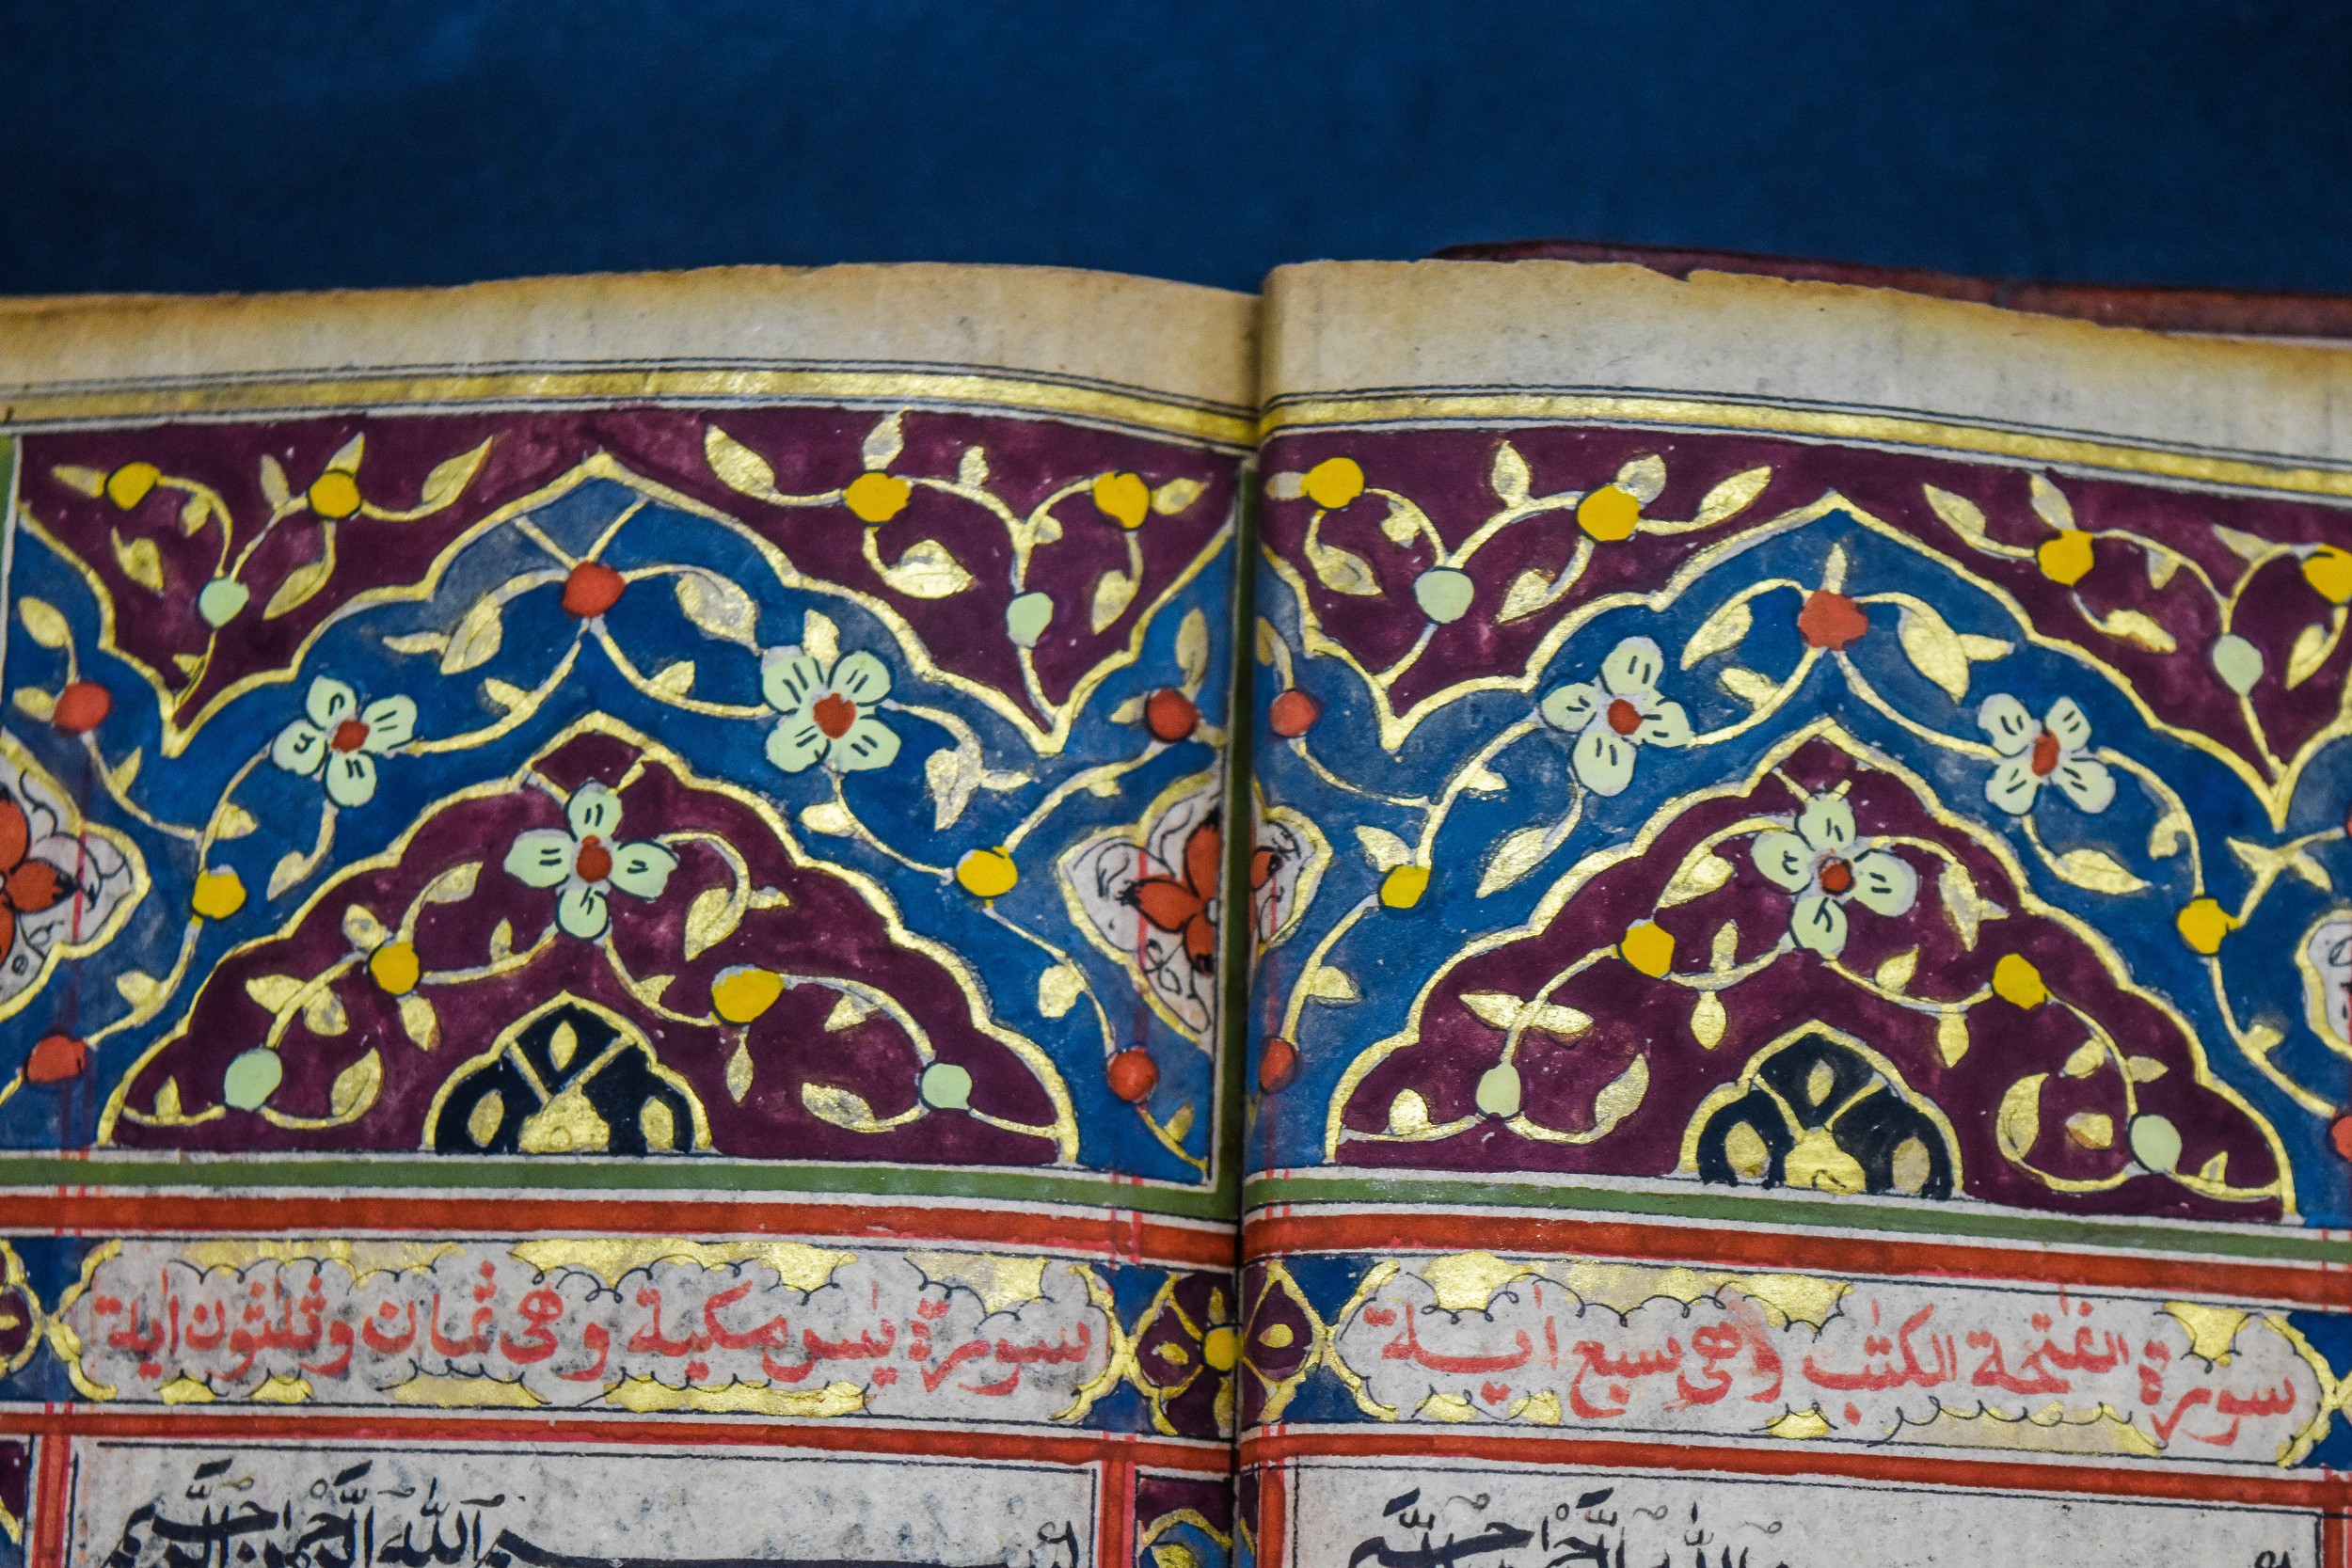 سورة الفٰتحة الكتٰب وهى سبع اية
بسم الله الرحمن الرحيم
سورة يٰس مكية وهى ثمان وثلثون اية
بسم الله الرحمن الرحيم